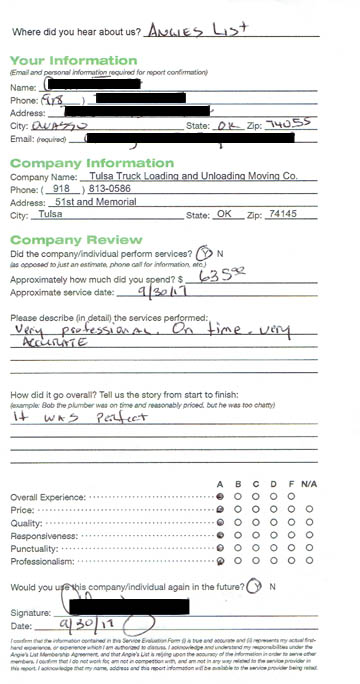 Where did you hear about us? ANGIES LIST
Your Information
(Email and personal information required for report confirmation)
Name:
Phone: (918 )
Address:
City: OWASSO State: OK Zip: 74055
Email: (required)
Company Information
Company Name: Tulsa Truck Loading and Unloading Moving Co.
Phone: ( 918 ) 813-0586
Address: 51st and Memorial
City: Tulsa State: OK Zip: 74145
Company Review
Did the company/individual perform services? Y N
(as opposed to just an estimate, phone call for information, etc.)
Approximately how much did you spend? $ 635
Approximate service date: 9/30/17
Please describe (in detail) the services performed:
Very professional. On time. very
ACCURATE
How did it go overall? Tell us the story from start to finish:
(example: Bob the plumber was on time and reasonably priced, but he was too chatty)
it was Perfect
A B C D F N/A
Overall Experience:
Price:
Quality:
Responsiveness:
Punctuality:
Professionalism:
Would you use this company/individual again in the future? Y N
Signature:
Date: 9/30/17
I confirm that the information contained in this Service Evaluation Form (i) is true and accurate and (ii) represents my actual first-
hand experience, or experience which I am authorized to discuss. I acknowledge and understand my responsibilities under the
Angie's List Membership Agreement, and that Angie's List is relying upon the accuracy of the information in order to serve other
members. I confirm that I do not work for, am not in competition with, and am not in any way related to the service provider in
this report. I acknowledge that my name, address and this report information will be available to the service provider being rated.